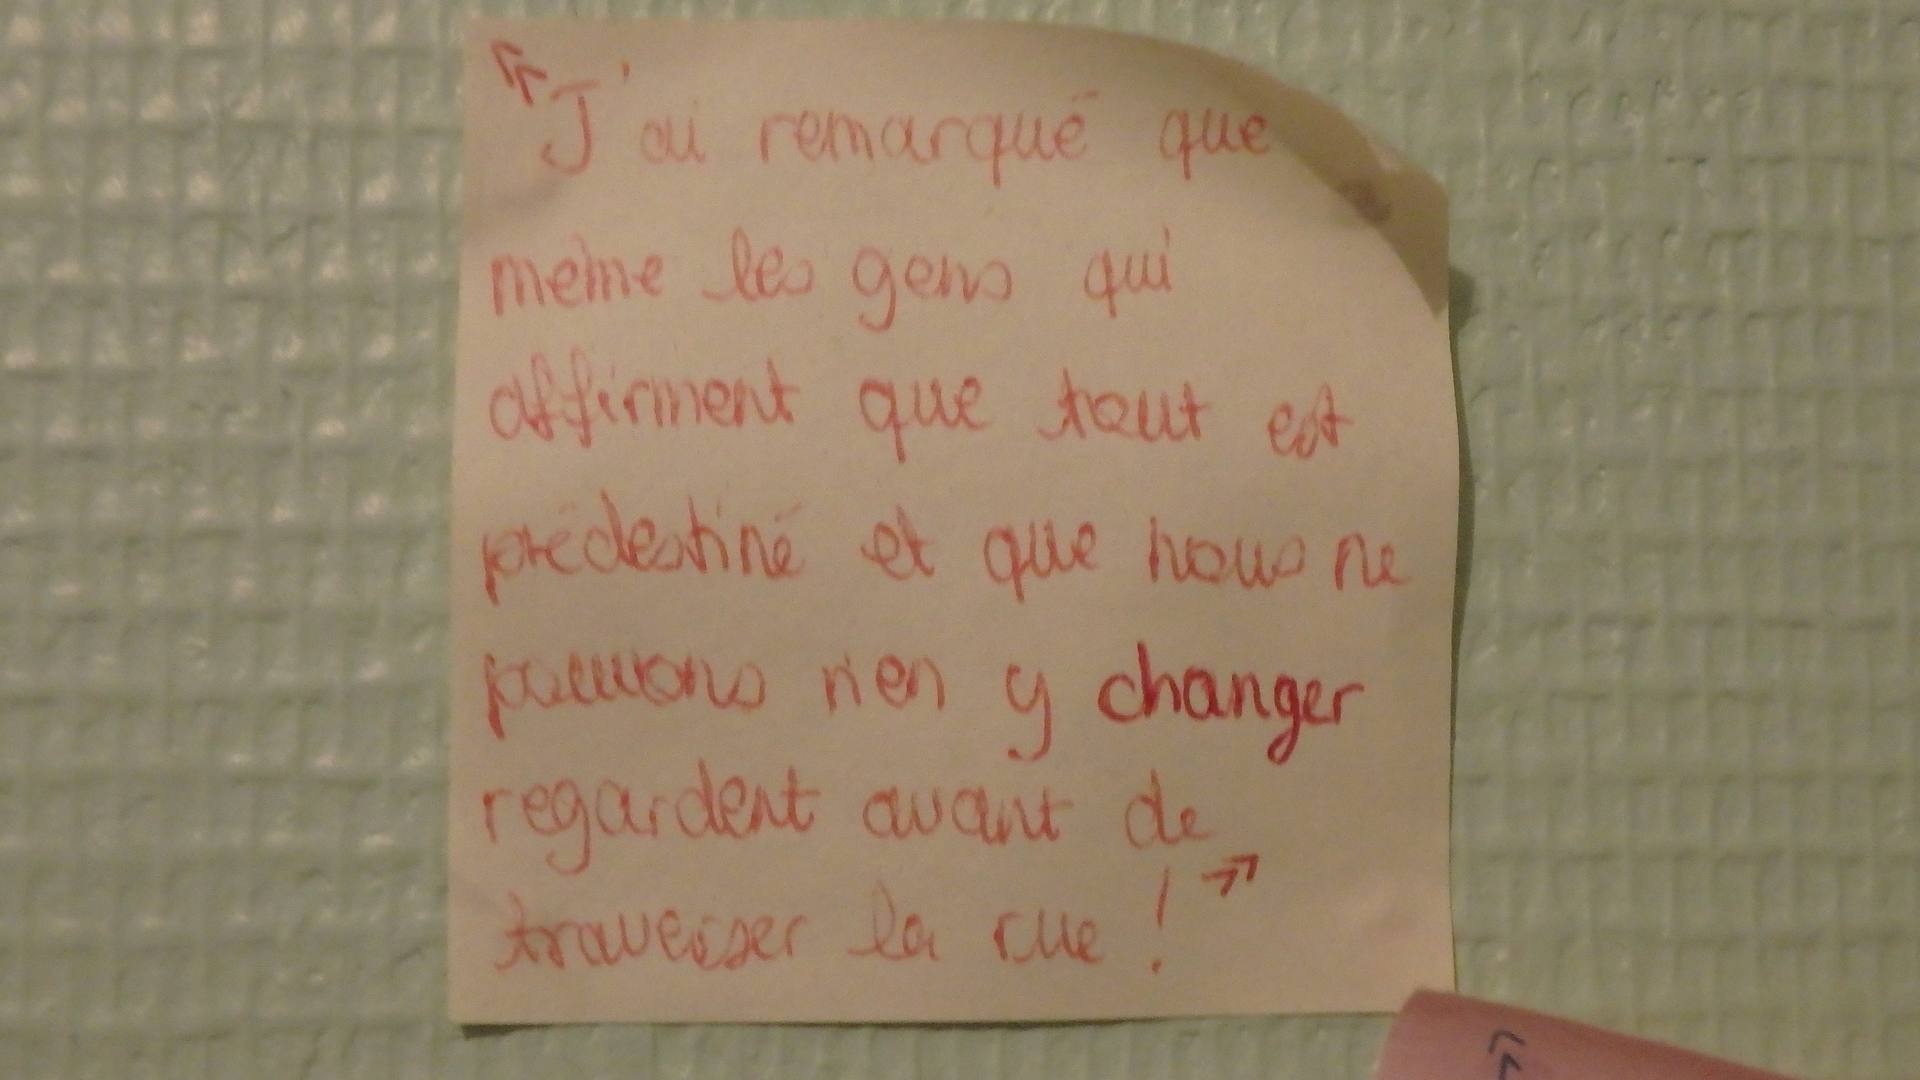 « J'ai remarqué que
même les gens qui
affirment que tout est
prédestiné et que nous ne
pouvons rien y changer
regardent avant de
traverser la rue ! »
«